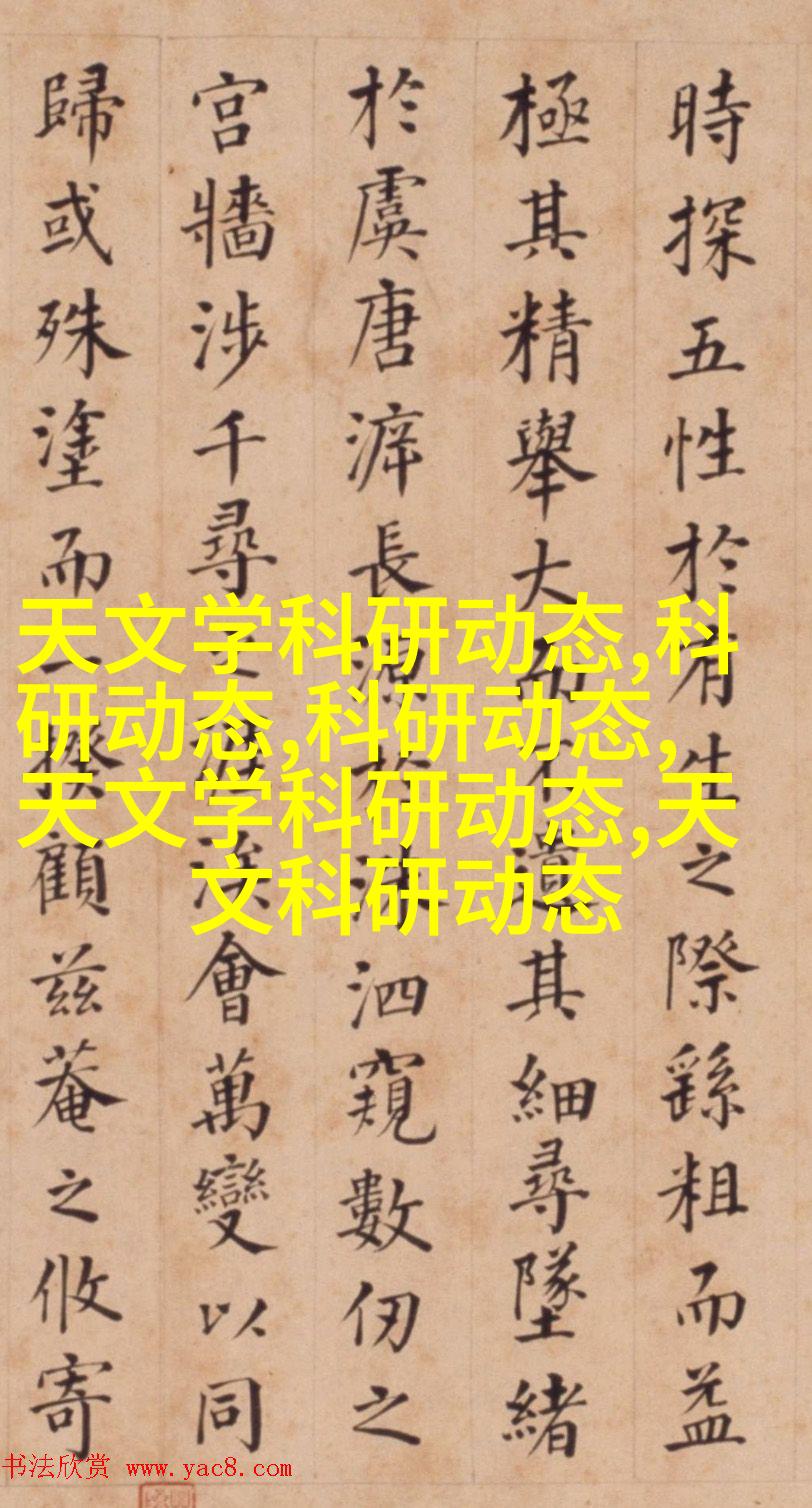 時探五性於有生之際繇粗而益
極其精舉大而不遺其細尋墜緒
於虞唐長源於洙泗窺數仞之
宮牆涉千尋之涯涘會萬變以同
歸或殊塗而一揆顧兹菴之攸寄
天文学科研动态,科
研动态,科研动态,
天文学科研动态,天
文科研动态
书法欣赏 www.yac8.com